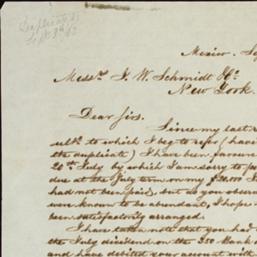 Duplicate
Sept
Mexico. Sep
Messrs. J. W. Schmidt &Co.
New York.
Dear Sirs.
Since my last r
ult. to which I beg to refer (have
the duplicate) I have been favoure
20th July by which I am sorry to p
due at the July term on my $20,000
had not been paid, but as you observe
were known to be abundant, I hope
been satisfactorily arranged.
I have taken note that you had
the July dividend on the 250 Bank
and have debited your account with